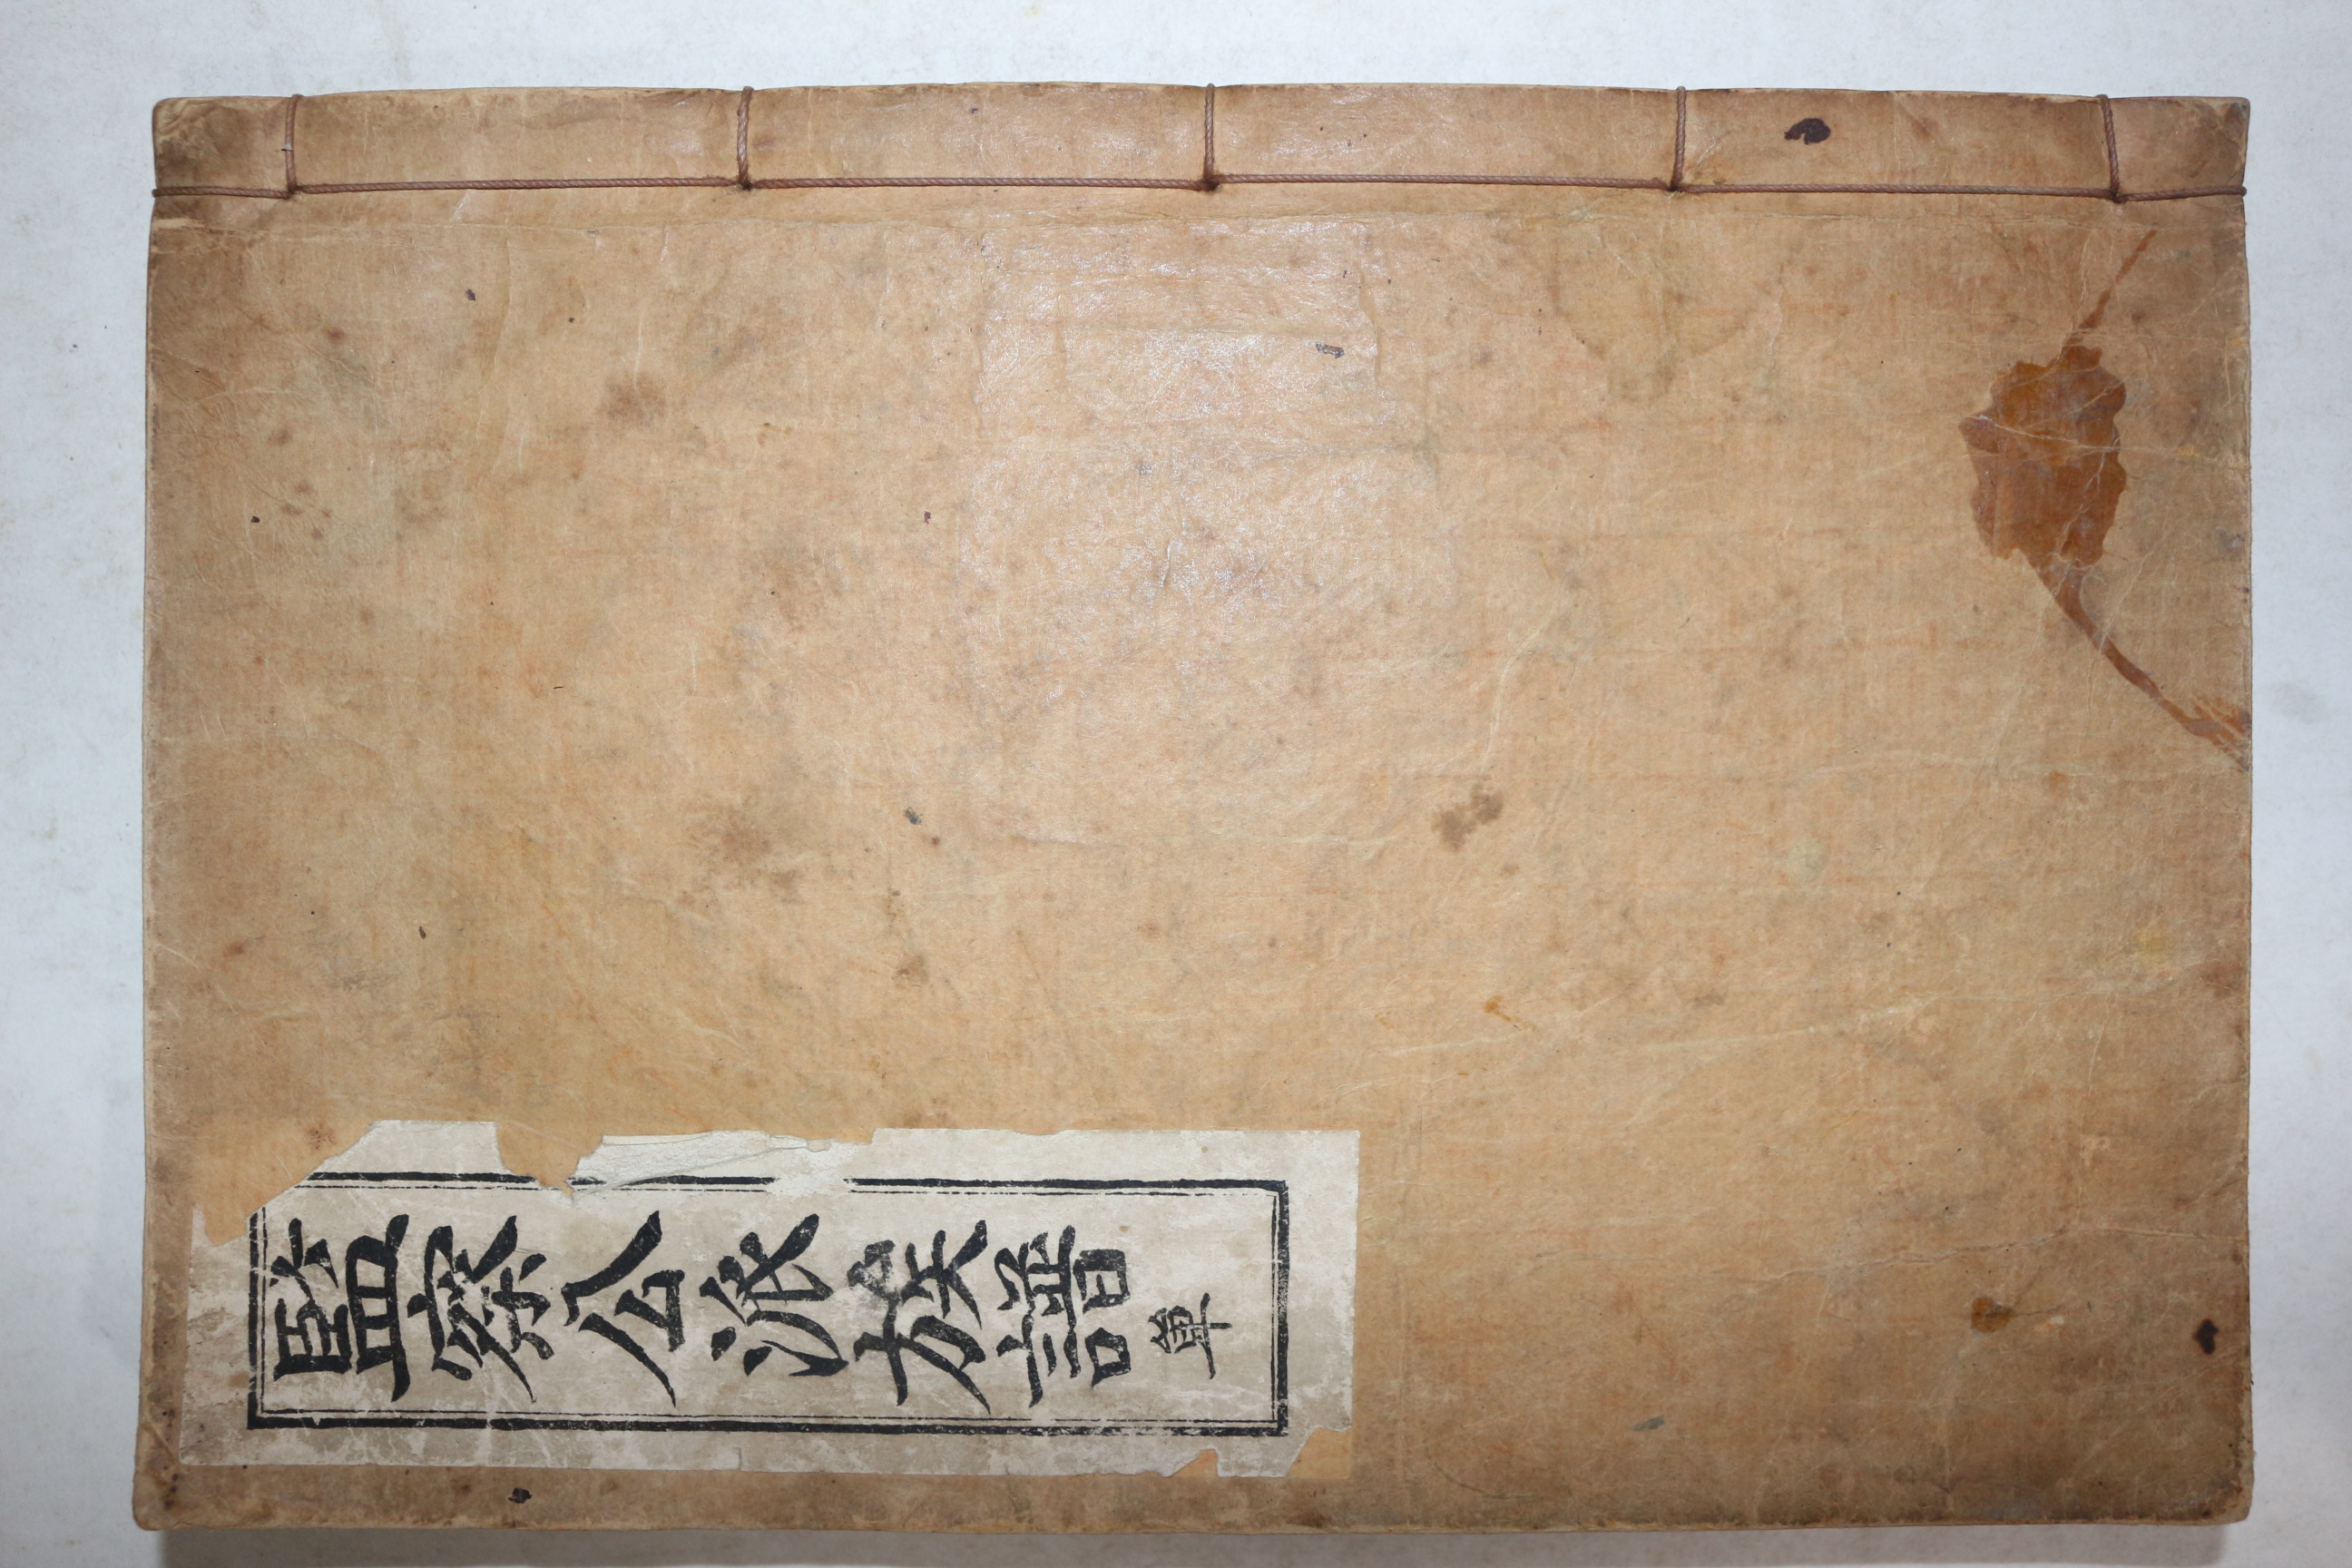 監察公派族譜 單